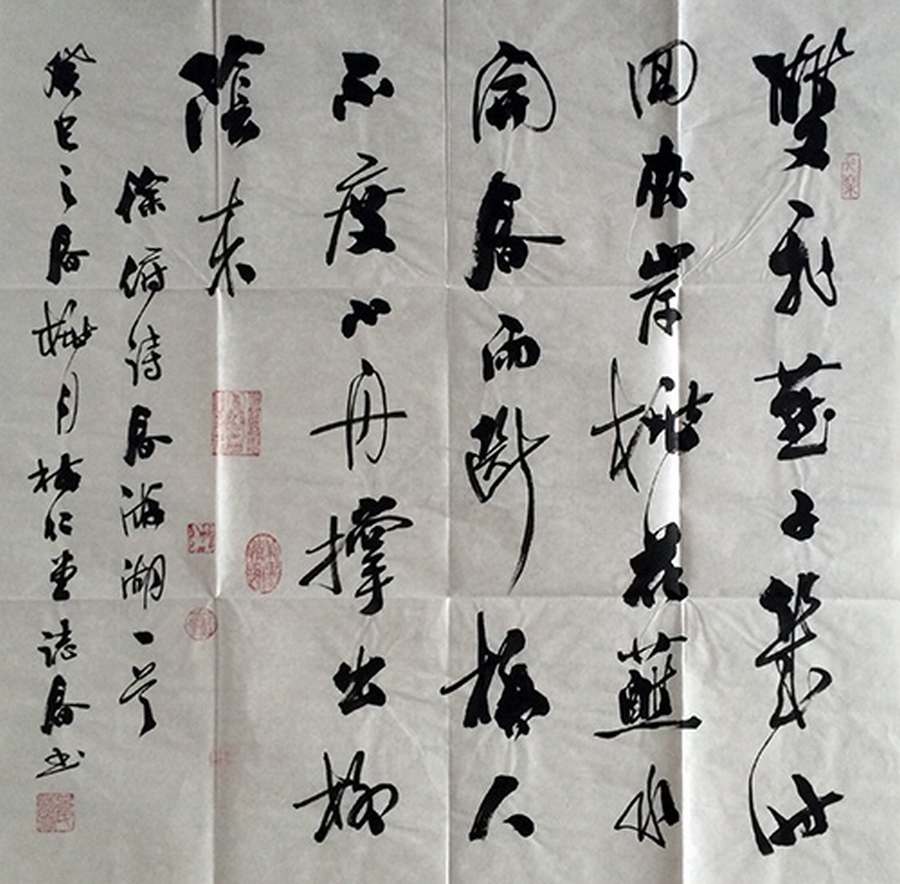 雙飛燕子幾時
回夾岸桃花蘸水
開春雨斷橋人
不度小舟撐出柳
陰來
徐俯詩春游湖一首
癸巳之春桃月仁堂誌春書